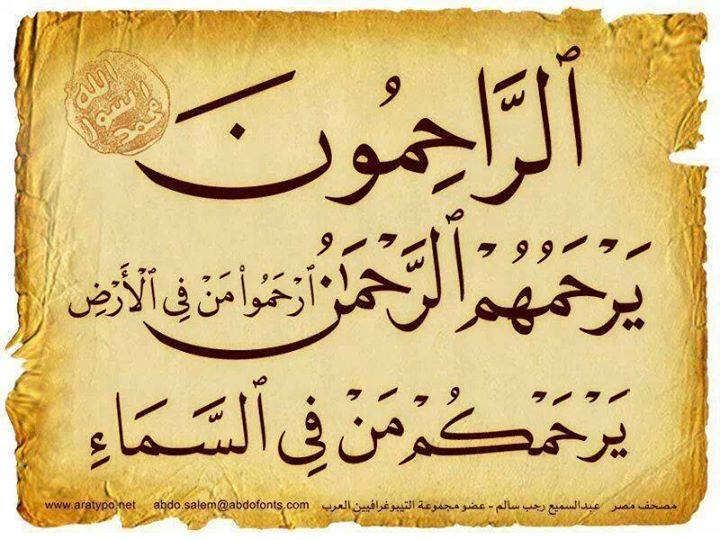 الله
رسول
محمد
ٱلرَّاحِمُونَ
يَرْحَمُهُمْ ٱلرَّحْمَٰنُ ٱرْحَمُواْ مَنْ فِي ٱلْأَرْضِ
يَرْحَمْكُمْ مَنْ فِي ٱلسَّمَاءِ
مصحف مصر عبدالسميع رجب سالم - عضو مجموعة التيبوغرافيين العرب abdo.salem@abdofonts.com www.aratypo.net